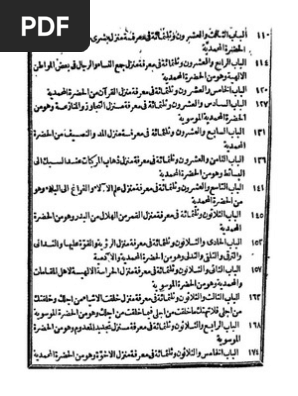 PDF
١١٠ الباب الثالث والعشرون وثلثمائة فى معرفة منزل بشرى
الحضرة المحمدية
١١٤ الباب الرابع والعشرون وثلثمائة فى معرفة منزل جمع النساء والرجال فى بعض المواطن
الالهية وهو من الحضرة المحمدية
١٢٠ الباب الخامس والعشرون وثلثمائة فى معرفة منزلة القرآن من الحضرة المحمدية
١٢٧ الباب السادس والعشرون وثلثمائة فى معرفة منزل التحاور والمنازعة وهو من
الحضرة المحمدية الموسوية
١٣١ الباب السابع والعشرون وثلثمائة فى معرفة منزل المد والنصيف من الحضرة
المحمدية
١٣٦ الباب الثامن والعشرون وثلثمائة فى معرفة منزل ذهاب المركبات عند السبك الى
البسائط وهو من الحضرة المحمدية
١٤١ الباب التاسع والعشرون وثلثمائة فى معرفة منزل علم الآلاء والفراغ الى البلاء وهو
من الحضرة المحمدية
١٤٥ الباب الثلاثون وثلثمائة فى معرفة منزل القمر من الهلال من البدر وهو من الحضرة
المحمدية
١٥٢ الباب الحادى والثلاثون وثلثمائة فى معرفة منزل الرؤية والقوة عليها والتدانى
والترقى والتلقى والتدلى وهو من الحضرة المحمدية والآدمية
١٥٧ الباب الثانى والثلاثون وثلثمائة فى معرفة منزل الحراسة الالهية لاهل المقامات
المحمدية وهو من الحضرة الموسوية
١٦٢ الباب الثالث والثلاثون وثلثمائة فى معرفة منزل خلقت الاشياء من اجلك وخلقتك
من اجلى فلا تهتك ما خلقت من اجلى فيما خلقت من اجلك وهو من الحضرة الموسوية
١٦٨ الباب الرابع والثلاثون وثلثمائة فى معرفة منزل تجديد المعدوم وهو من الحضرة
الموسوية
١٧٤ الباب الخامس والثلاثون وثلثمائة فى معرفة منزل الاخوة وهو من الحضرة المحمدية